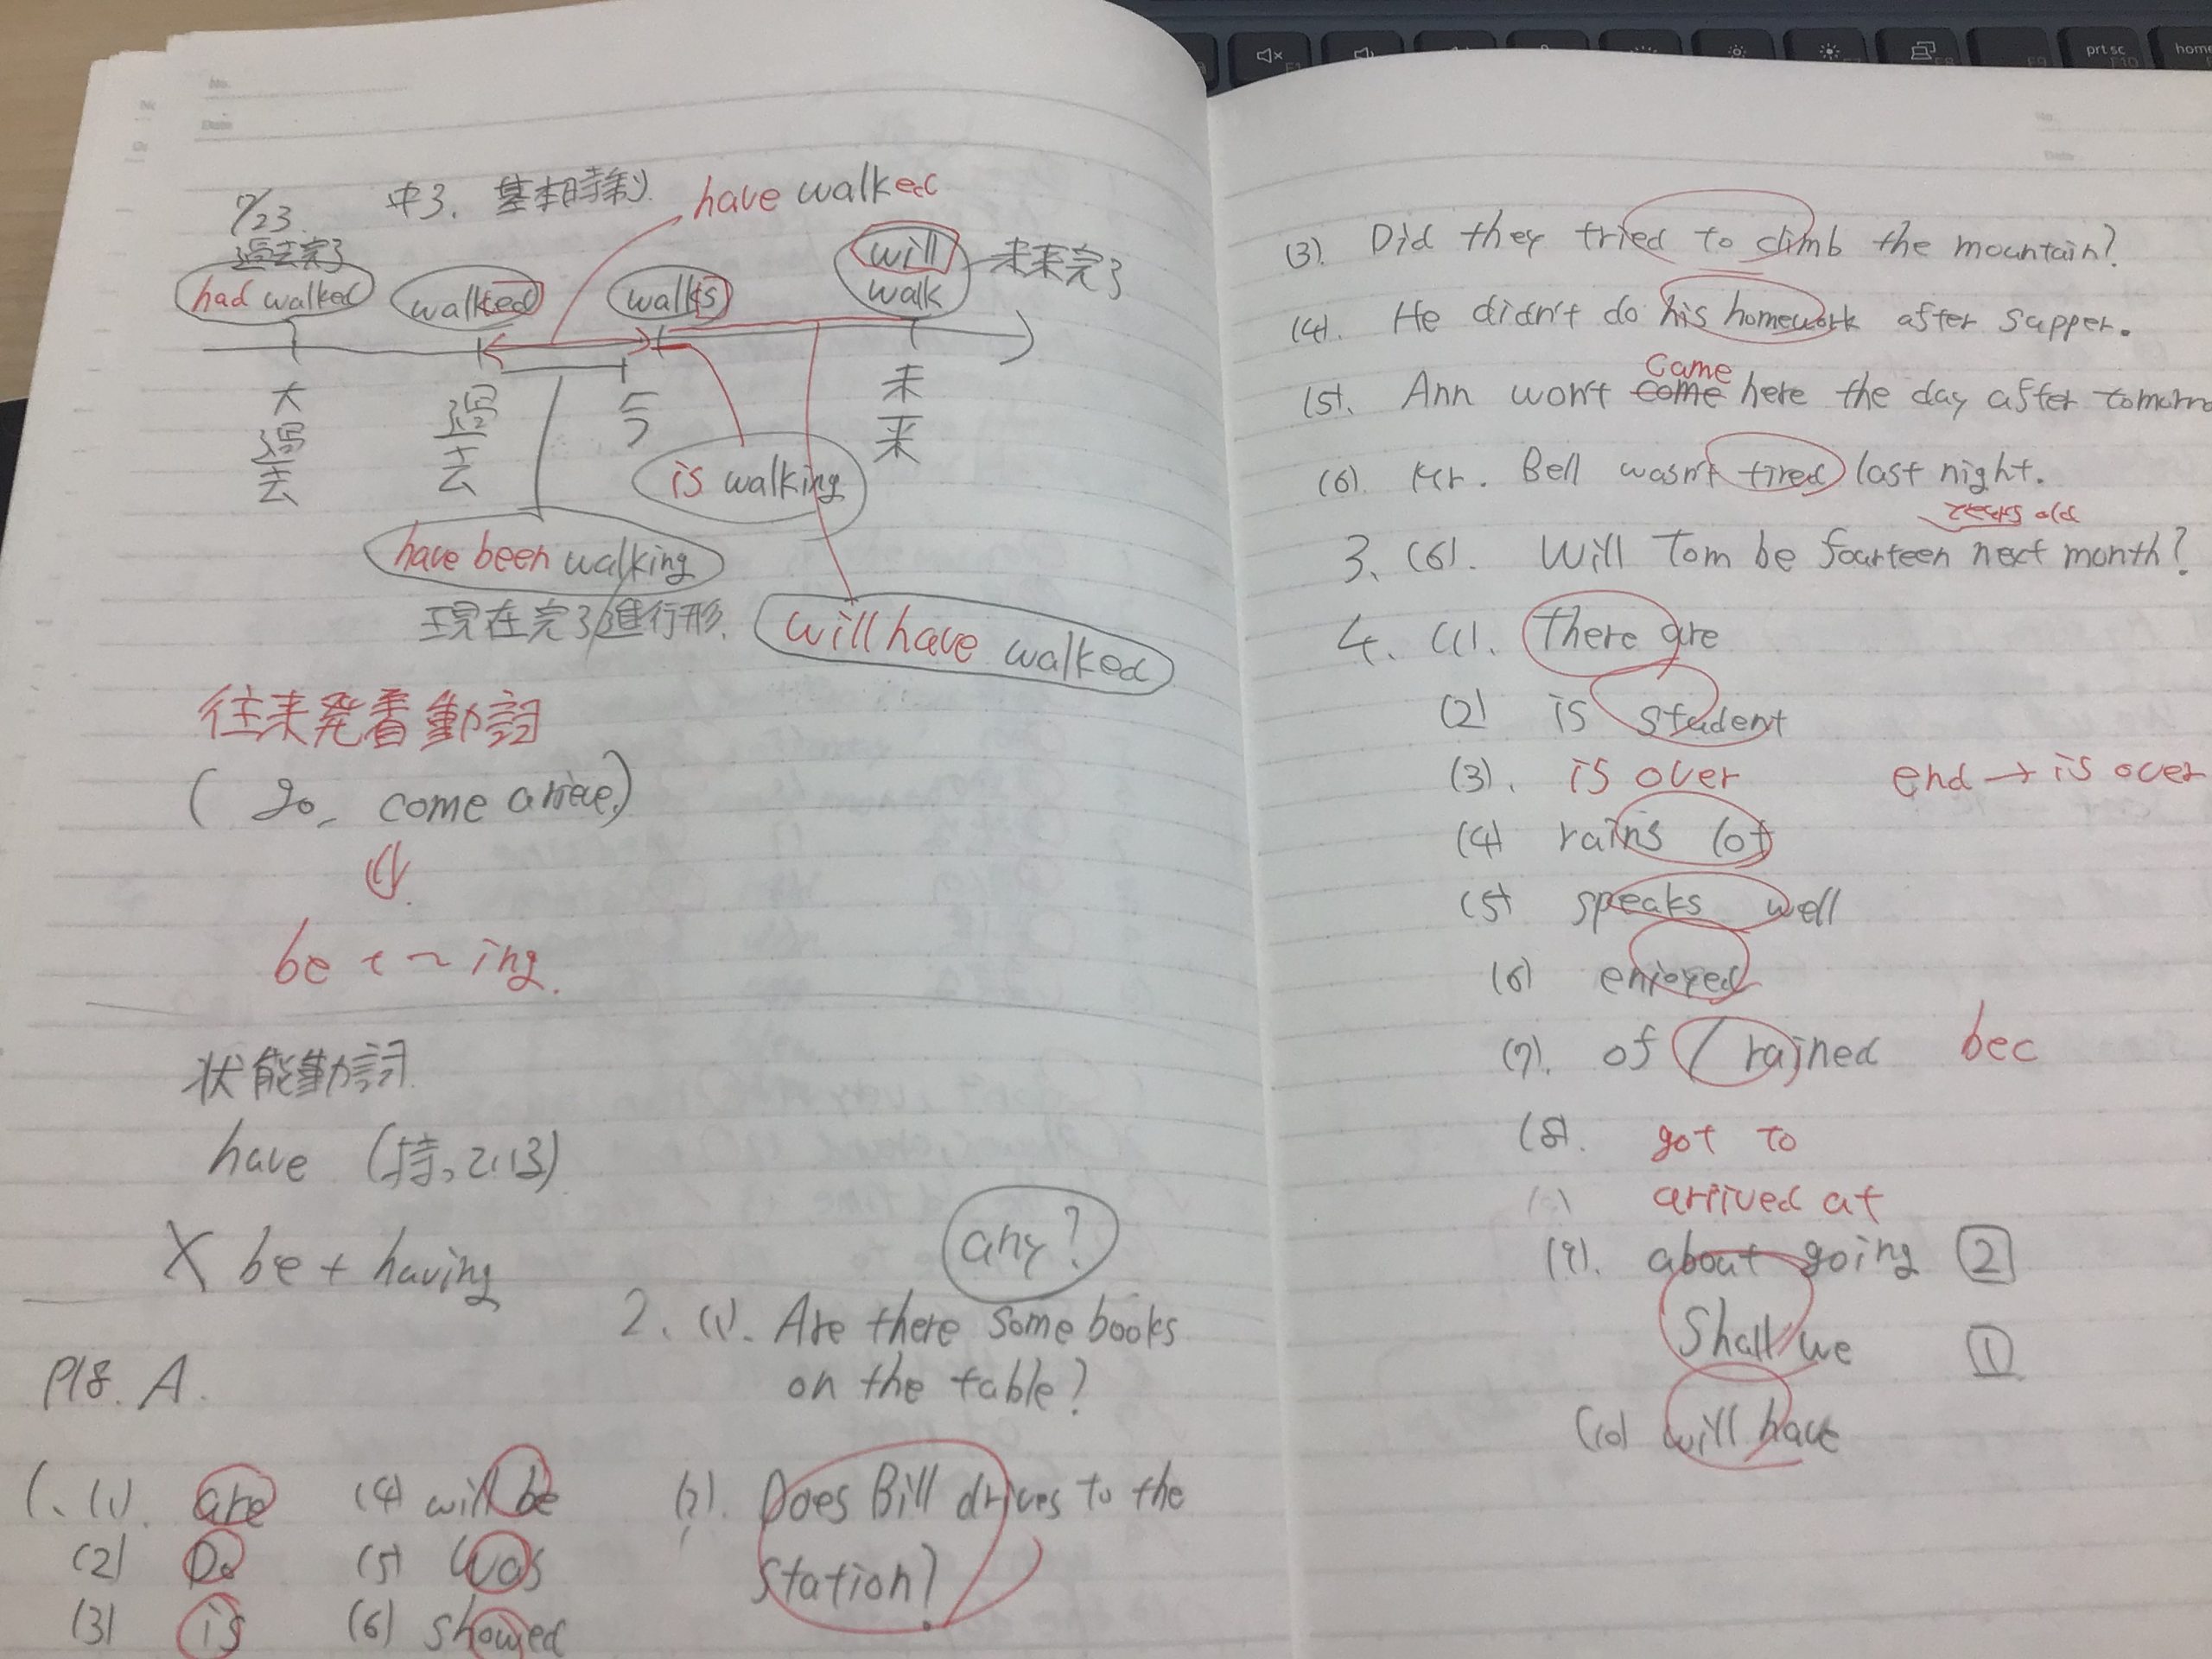 No.
Date
7/23. 中3. 基本時制
have walked
過去完了
had walked
walked
walks
will
walk
未来完了
大過去
過去
今
未来
is walking
have been walking
現在完了進行形.
will have walked
往来発着動詞
( go, come arrive,)
be + ~ ing.
状態動詞
have (持っている)
X be + having
any?
P18. A.
1. (1). are
(2) Do
(3) is
(4) will be
(5) was
(6) showed
2. (1). Are there some books
on the table?
(2). Does Bill drives to the
station?
No.
Date
(3). Did they tried to climb the mountain?
(4). He didn't do his homework after supper.
came
(5). Ann won't come here the day after tomorro
(6). Mr. Bell wasn't tired last night.
years old
3. (6). Will Tom be fourteen next month?
4. (1). There are
(2) is student
(3). is over end → is over
(4) rains lot
(5) speaks well
(6) enjoyed
(7). of / rained bec
(8). got to
arrived at
(9). about going 2
Shall we 1
(10) will have
prt sc
F10
home
F9
F8
F1